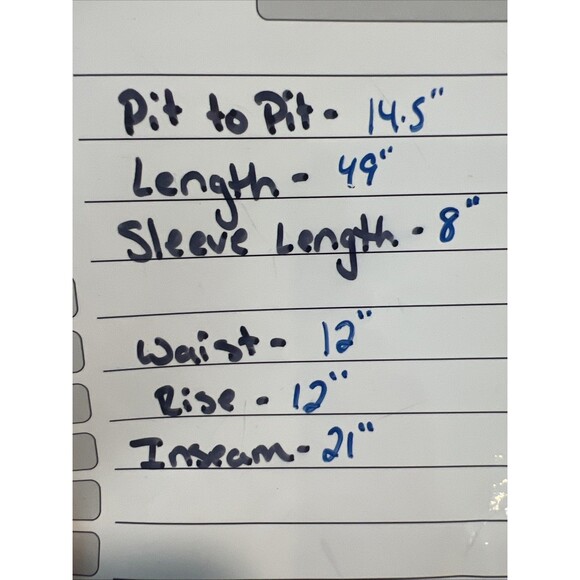 Pit to Pit - 14.5"
Length - 49"
Sleeve Length - 8"
Waist - 12"
Rise - 12"
Inseam - 21"